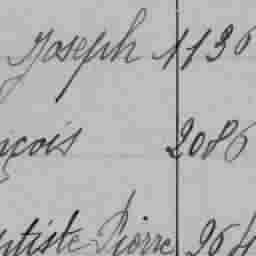 Joseph 1136
nçois 2086
ptiste Pierre 964